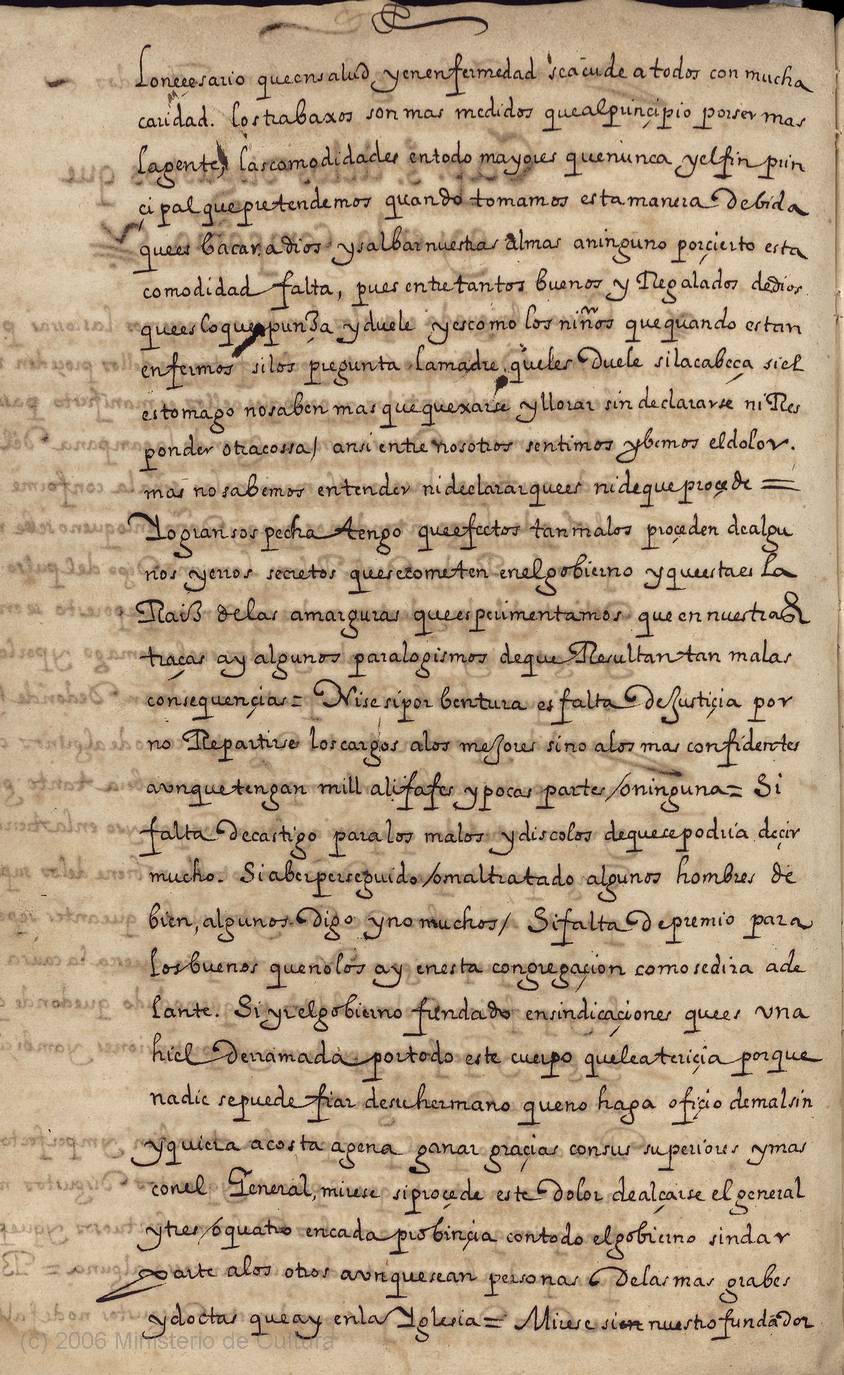 Lo neçesario que en salud y en enfermedad se acude a todos con mucha
caridad. los trabaxos son mas medidos que al prinçipio por ser mas
la gente, las comodidades en todo mayores que nunca y el fin prin
çipal que pretendemos quando tomamos esta manera de bida
que es bacar a dios y salbar nuestras almas a ninguno por çierto esta
comodidad falta, pues entre tantos buenos y Regalados de dios
que es lo que punza y duele y es como los niños que quando estan
enfermos si los pregunta la madre, que les duele si la cabeça si el
estomago no saben mas que quexarse y llorar sin declararse ni Res
ponder otra cossa / ansi entre nosotros sentimos y bemos el dolor.
mas no sabemos entender ni declarar que es ni de que proçede =
Yo gran sospecha tengo que efectos tan malos proçeden de algu
nos yerros secretos que se cometen en el gobierno y que esta es la
Raiz de las amarguras que esperimentamos que en nuestras
traças ay algunos paralogismos de que Resultan tan malas
consequençias = Vise si por bentura es falta de Justiçia por
no Repartirse los cargos a los mejores sino a los mas confidentes
aunque tengan mill alifafes y pocas partes / o ninguna = Si
falta de castigo para los malos y discolos de que se podria deçir
mucho. Si aber perseguido / o maltratado algunos hombres de
bien, algunos digo y no muchos / Si falta de premio para
los buenos que no los ay en esta congregaçion como se dira ade
lante. Si yr el gobierno fundado en sindicaçiones que es una
hiel derramada por todo este cuerpo que le atericia porque
nadie se puede fiar de su hermano que no haga ofiçio de malsin
y quiera a costa agena ganar graçias con sus superiores y mas
con el General, mirese si proçede este dolor de alçarse el general
y tres / o quatro en cada probinçia con todo el gobierno sin dar
parte a los otros aunque sean personas de las mas grabes
y doctas que ay en la Yglesia = Mirese si en nuestro fundador
(c) 2006 Ministerio de Cultura